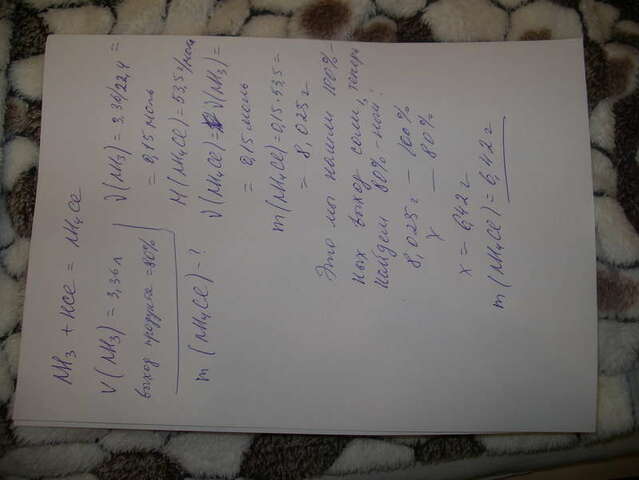 NH3 + HCl = NH4Cl
V(NH3) = 3,36 л
выход продукта = 80%
m(NH4Cl) - ?
ν(NH3) = 3,36/22,4 =
= 0,15 моль
M(NH4Cl) = 53,5 г/моль
ν(NH4Cl) = ν(NH3) =
= 0,15 моль
m(NH4Cl) = 0,15·53,5 =
= 8,025 г
Это мы нашли 100%-
ных выход соли, теперь
найдем 80%-ный:
8,025 г – 100%
x – 80%
x = 6,42 г
m(NH4Cl) = 6,42 г